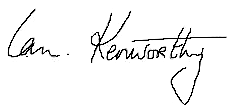 Ian. Kenworthy